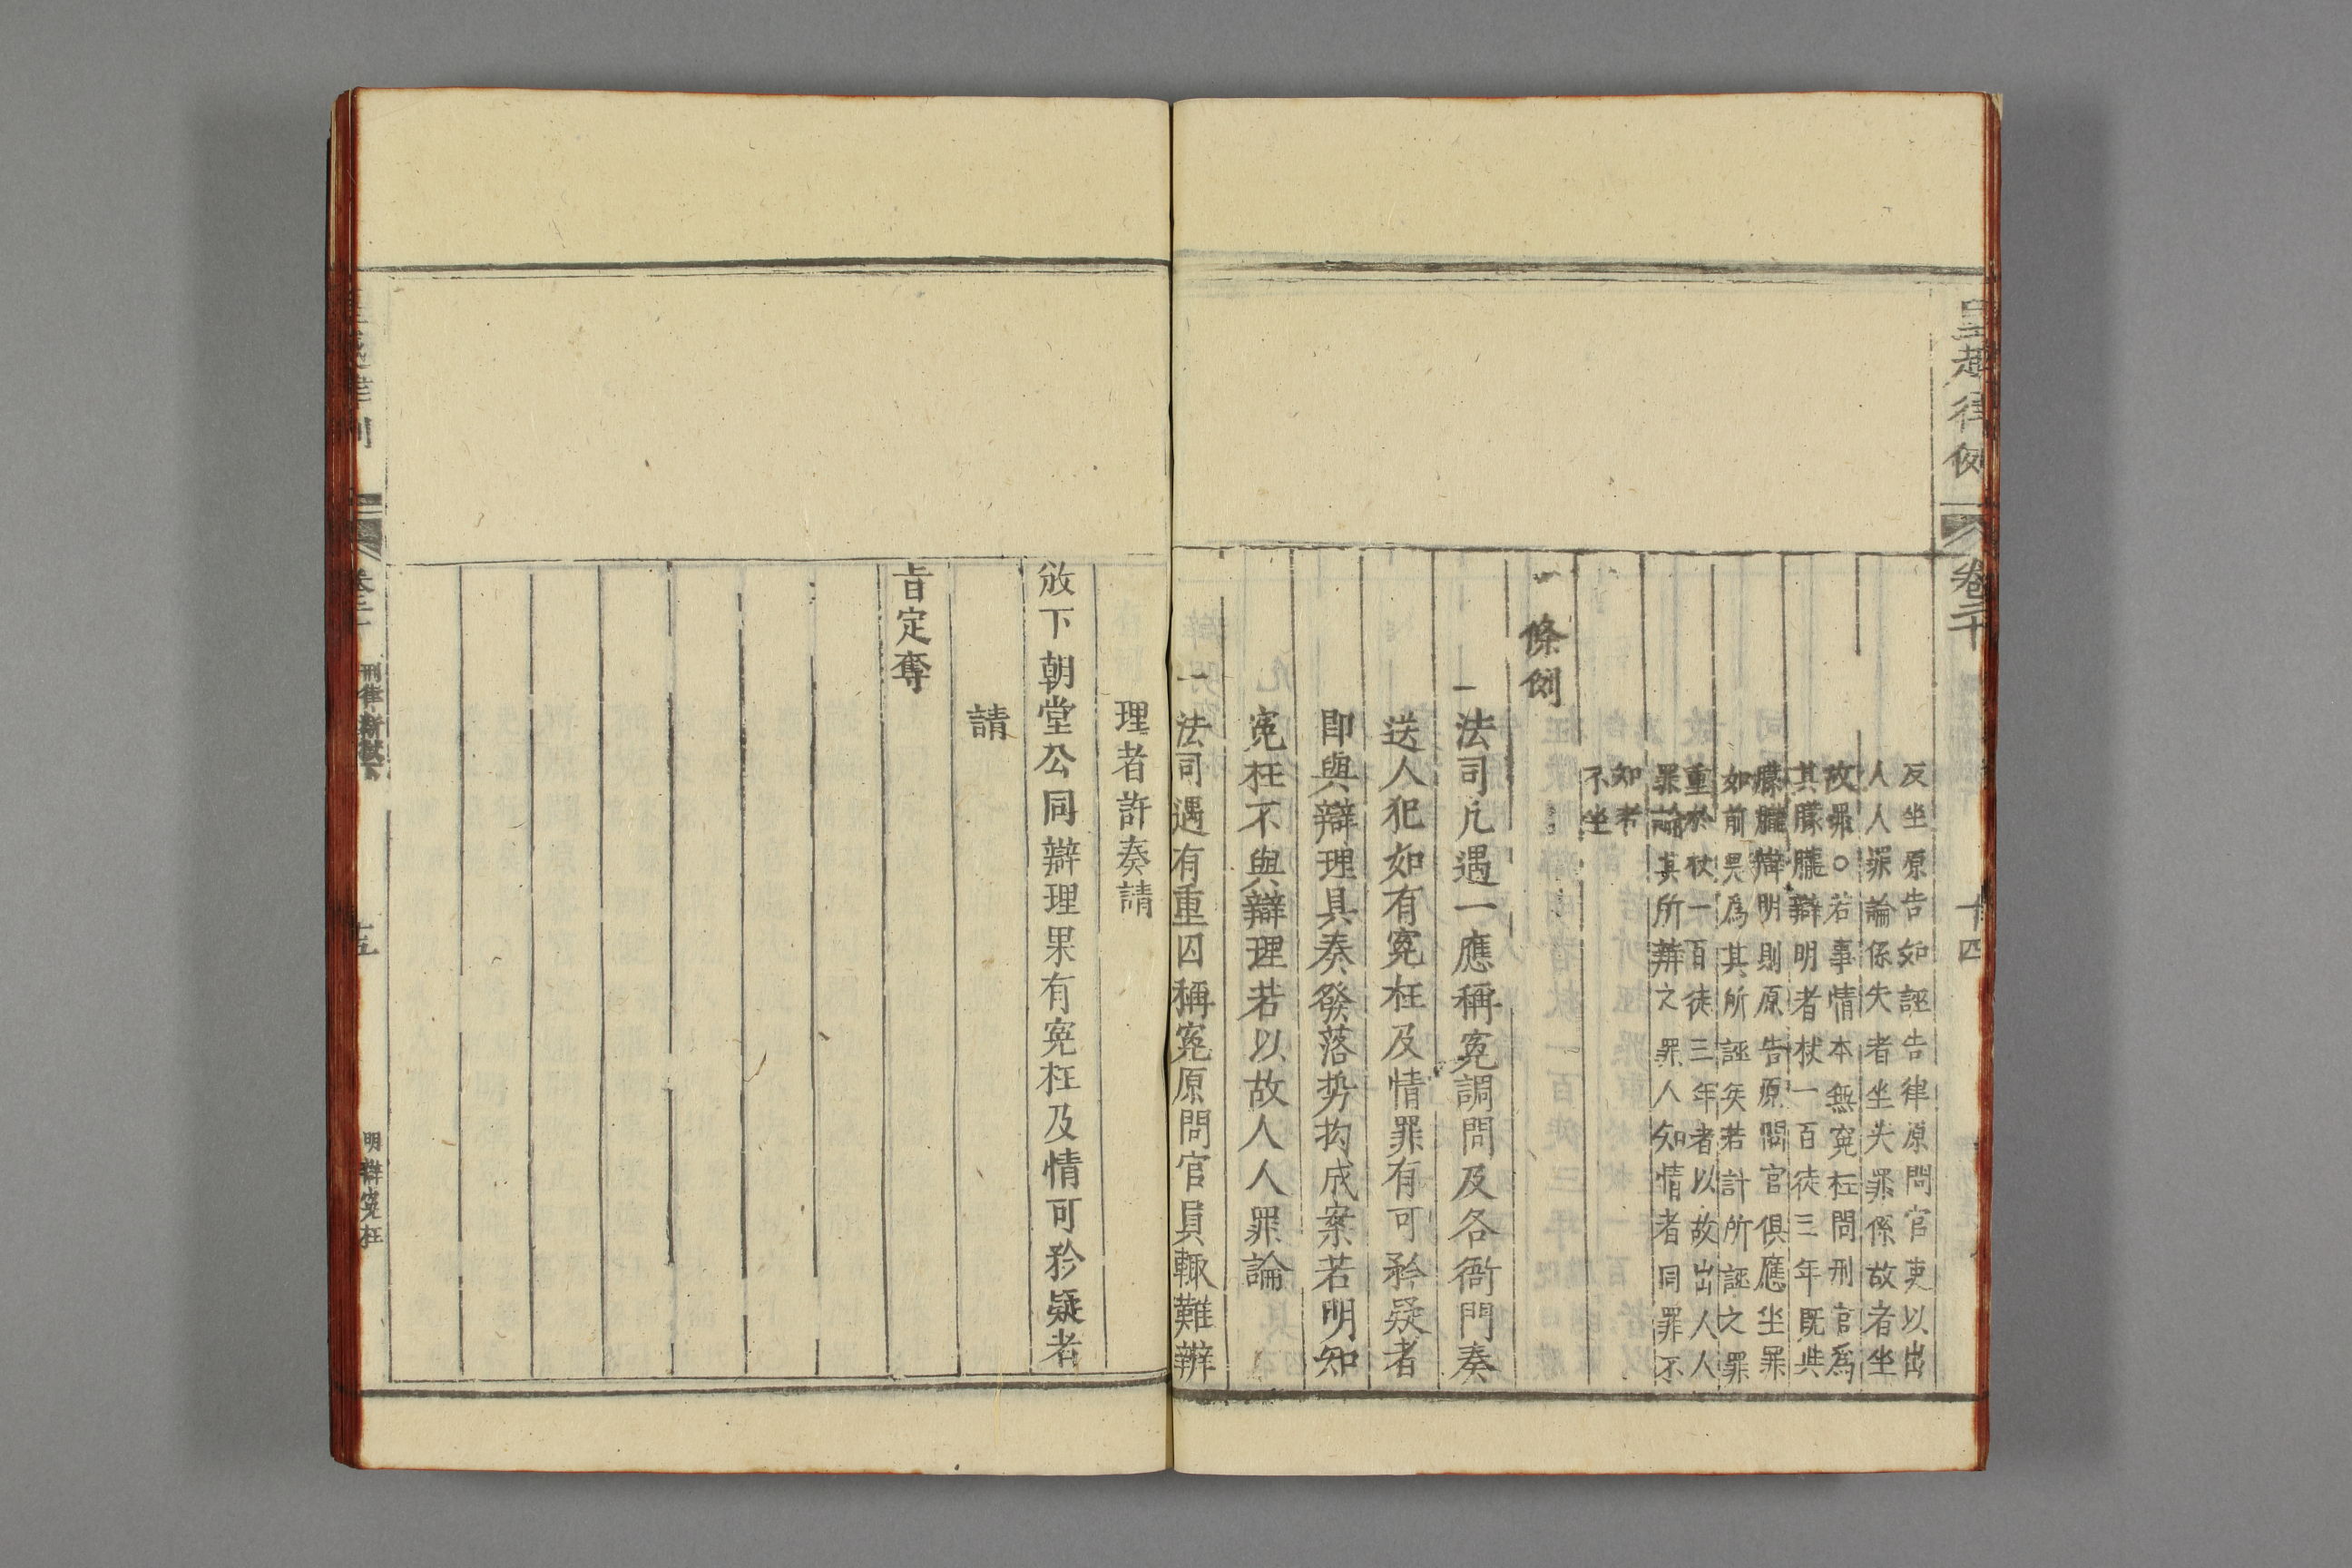 皇越律例 卷二十 十四
反坐原告如誣告律原問官吏以出
人人罪論係失者坐失罪係故者坐
故罪○若事情本無寃枉問刑官爲
其朦朧辯明者杖一百徒三年既與
朦朧辯明則原告原問官俱應坐罪
如前畏爲其所誣矣若計所誣之罪
重於杖一百徒三年者以故出人人
罪論其所辨之罪人知情者同罪不
知者
不坐
一條例
一法司凡遇一應稱寃調問及各衙門奏
送人犯如有寃枉及情罪有可矜疑者
即與辯理具奏發落勢拘成案若明知
寃枉不與辯理若以故人人罪論
一法司遇有重囚稱寃原問官員輒難辨
理者許奏請
放下朝堂公同辯理果有寃枉及情可矜疑者
請
旨定奪
刑律斷獄下 十五 明辯寃枉